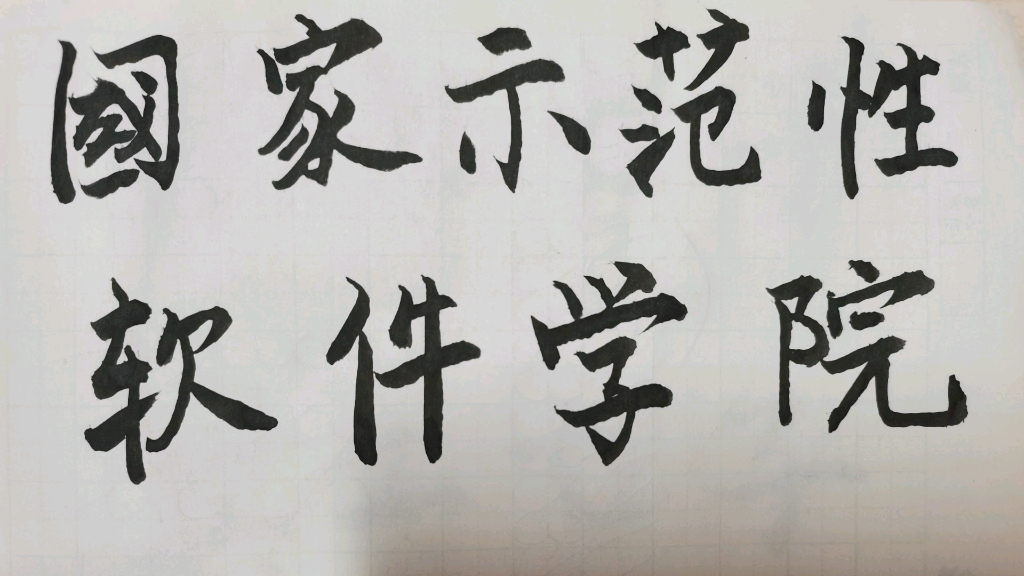 國家示范性
软件学院